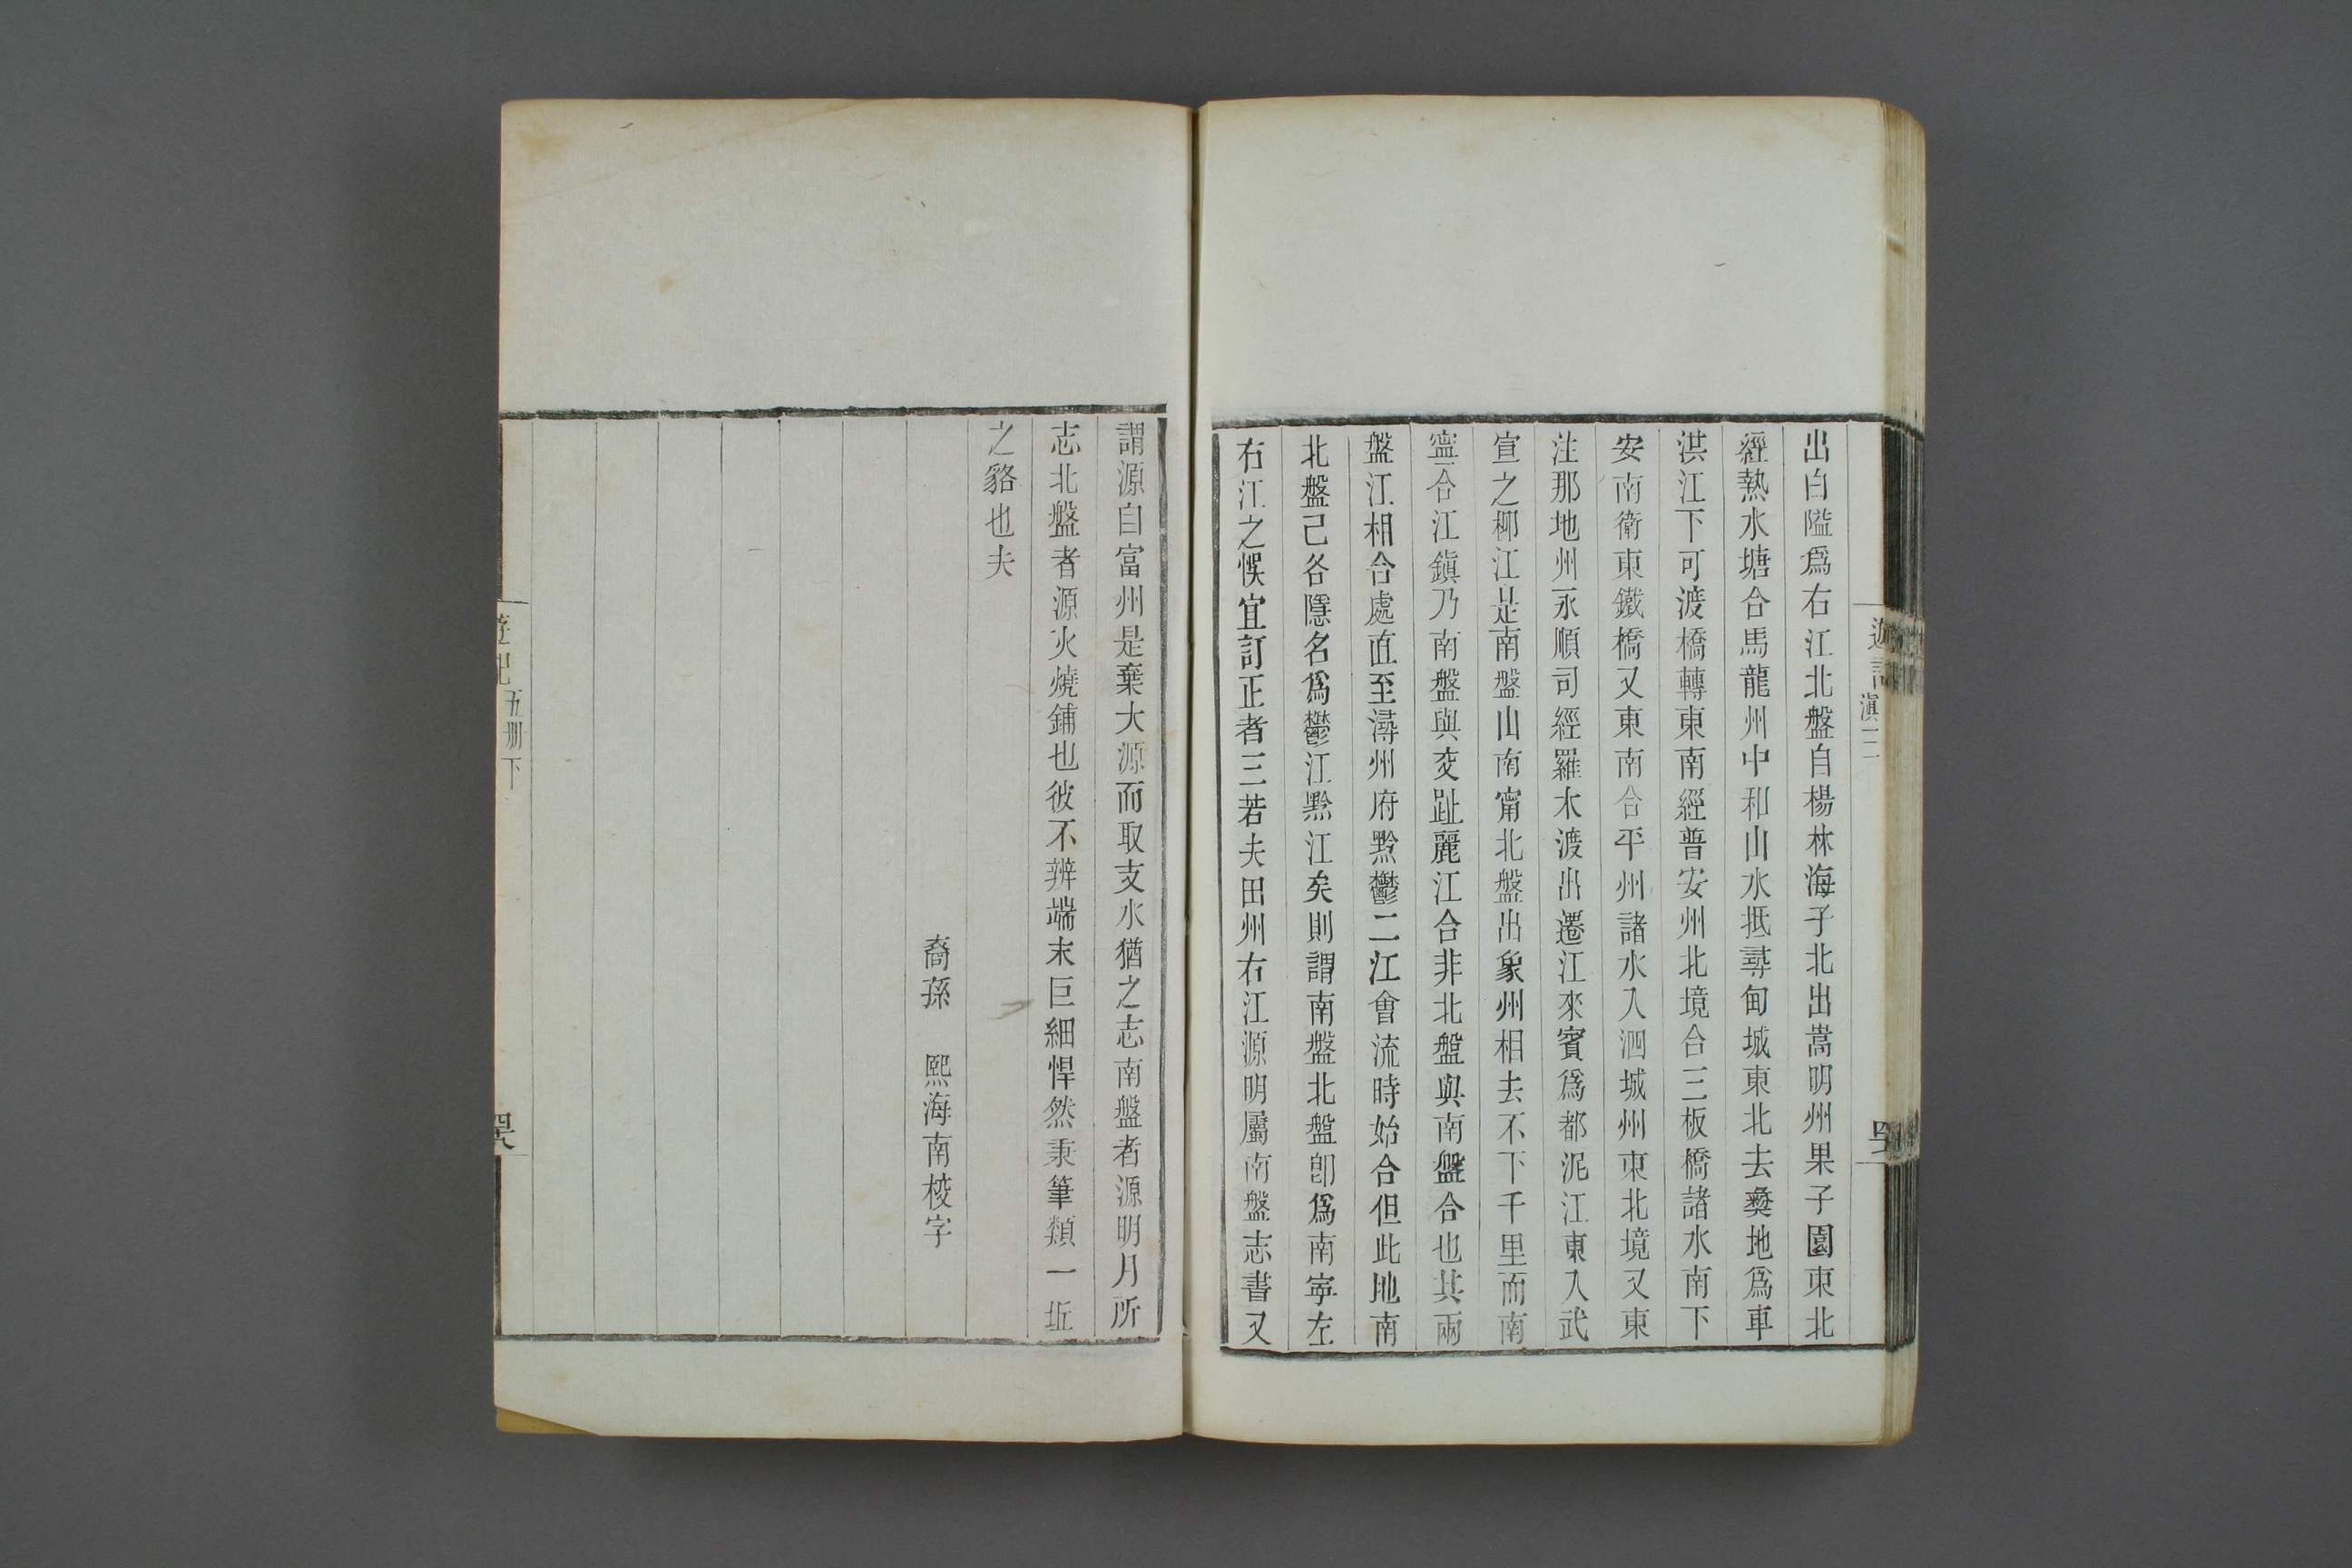 出白隘爲右江北盤自楊林海子北出嵩明州果子園東北
經熱水塘合馬龍州中和山水抵尋甸城東北去彝地爲車
洪江下可渡橋轉東南經普安州北境合三板橋諸水南下
安南衛東鐵橋又東南合平州諸水入泗城州東北境又東
注那地州永順司經羅木渡出遷江來賓爲都泥江東入武
宣之柳江是南盤山南甯北盤出象州相去不下千里而南
寧合江鎮乃南盤與交趾麗江合非北盤與南盤合也其兩
盤江相合處直至潯州府黔鬱二江會流時始合但此地南
北盤已各隱名爲鬱江黔江矣則謂南盤北盤卽爲南寧左
右江之悞宜訂正者三若夫田州右江源明屬南盤志書又
謂源自富州是棄大源而取支水猶之志南盤者源明月所
志北盤者源火燒鋪也彼不辨端末巨細悍然秉筆類一坵
之貉也夫
裔孫 熙海南校字
遊記滇三
遊記五册下